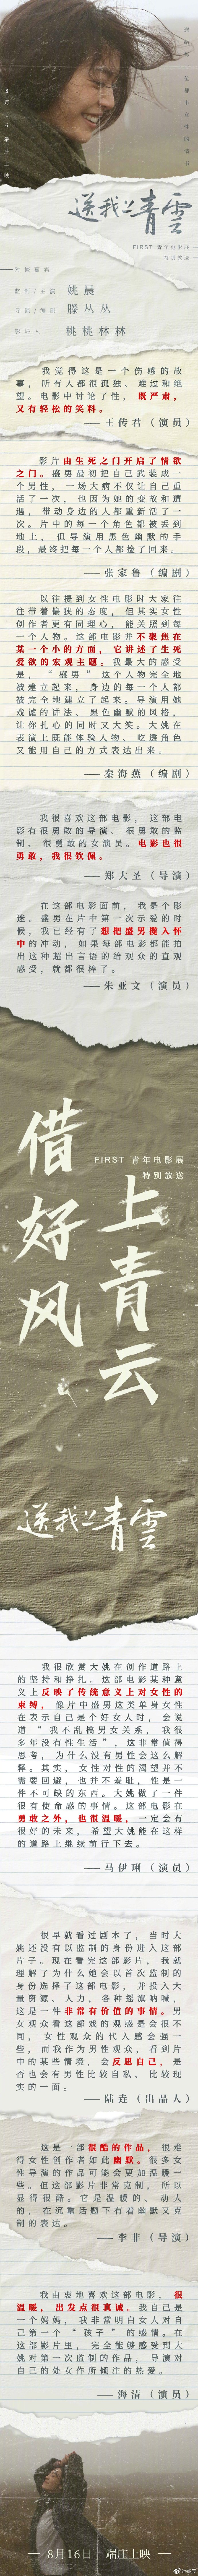 8月16 端庄上映
送我上青雲
FIRST 青年电影展
特别放送
对谈嘉宾
监制/主演 姚晨
导演/编剧 滕丛丛
主持人 桃桃林林
我觉得这是一个伤感的故
事，所有人都很孤独、难过和绝
望。电影中讨论了性，既严肃，
又有轻松的笑料。
——王传君（演员）
影片由生死之门开启了情欲
之门。盛男最初把自己武装成一
个男性，一场大病不仅让自己重
活了一次，也因为她的变故和遭
遇，带动身边的人都重新活了一
次。片中的每一个角色都被丢到
地上，但导演用黑色幽默的手
段，最终把每一个人都捡了回来。
——张家鲁（编剧）
以往提到女性电影时大家往
往带着偏狭的态度，但其实女性
创作者更有同理心，能关照到每
一个人物。这部电影并不聚焦在
某一个小的方面，它讲述了生死
爱欲的宏观主题。我最大的感受
是，“盛男”这个人物完全地
被建立起来，身边的每一个人都
被完全地建立了起来。导演用她
戏谑的讲法、黑色幽默的风格，
让你扎心的同时又大笑。大姚在
表演上既能体验人物、吃透角色
又能用自己的方式表达出来。
——秦海燕（编剧）
我很喜欢这部电影，这部电
影有很勇敢的导演、很勇敢的监
制、很勇敢的女演员。电影也很
勇敢，我很钦佩。
——郑大圣（导演）
在这部电影面前，我是个影
迷。盛男在片中第一次示爱的时
候，我已经有了想把盛男揽入怀
中的冲动，如果每部电影都能拍
出这种超出言语的给观众的直观
感受，就都很棒了。
——朱亚文（演员）
借好风
上青云
FIRST 青年电影展
特别放送
送我上青雲
我很欣赏大姚在创作道路上
的坚持和挣扎。这部电影某种意
义上反映了传统意义上对女性的
束缚，像片中盛男这类单身女性
在表示自己是个好女人时，会说
道“我不乱搞男女关系，我很
多年没有性生活”，这非常值得
思考，为什么没有男性会这么解
释。其实，女性对性的渴望并不
需要回避，也并不羞耻，性是一
件不可缺的东西。大姚做了一件
很有使命感的事情。这部电影在
勇敢之外，也很温暖，一定会有
很好的未来，希望大姚能在这样
的道路上继续前行下去。
——马伊琍（演员）
很早就看过剧本了，当时大
姚还没有以监制的身份进入这部
片子。现在看完这部影片，我就
理解了为什么她会以首次监制的
身份选择了这部电影，并投入大
量资源、人力，各种摇旗呐喊，
这是一件非常有价值的事情。男
女观众看这部戏的观感是会很不
同，女性观众的代入感会强一
些，而我作为男性观众，看到片
中的某些情境，会反思自己，是
否也会有男性比较自私、比较现
实的一面。
——陆垚（出品人）
这是一部很酷的作品，很难
得女性创作者如此幽默。很多女
性导演的作品可能会更加温暖一
些。但这部影片非常克制，所以
显得很酷。它是温暖的、动人
的，在沉重话题下有着幽默又克
制的表达。
——李非（导演）
我由衷地喜欢这部电影，很
温暖，出发点很真诚。我自己是
一个妈妈，我非常明白女人对自
己第一个“孩子”的感情。在
这部影片里，完全能够感受到大
姚对第一次监制的作品，导演对
自己的处女作所倾注的热爱。
——海清（演员）
— 8月16日 端庄上映 —